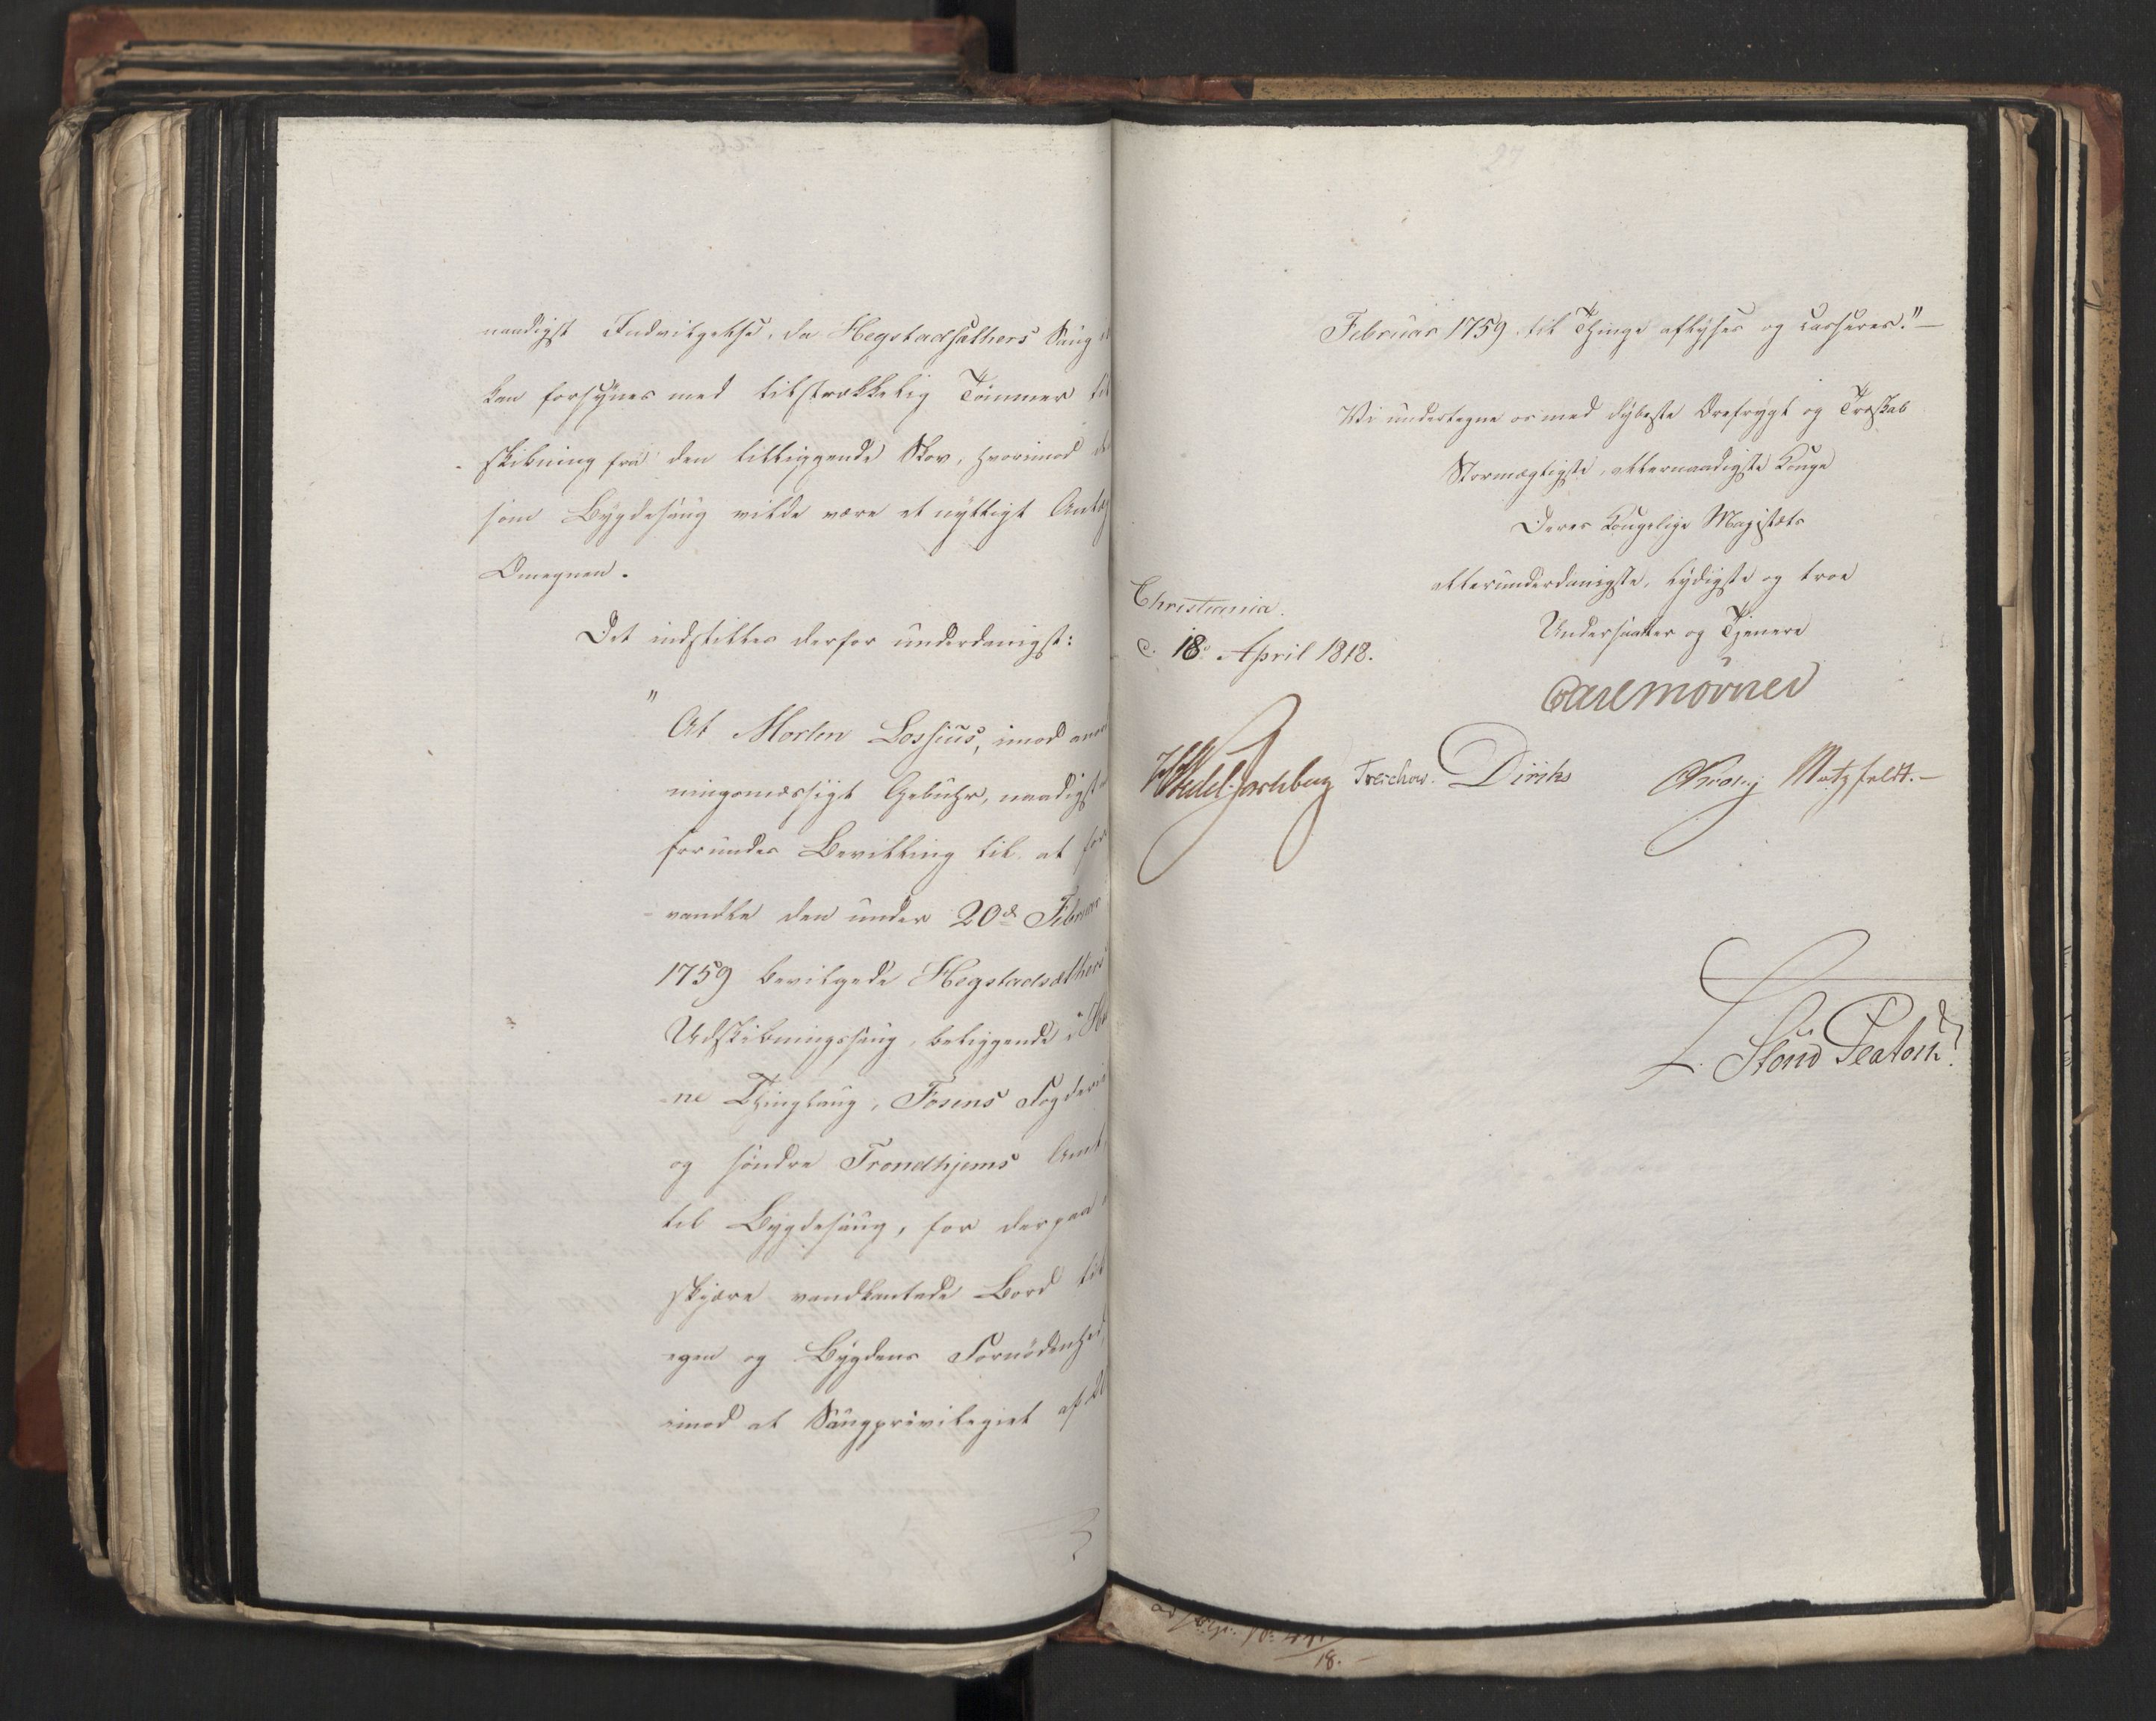 naadigst Indvilgelse, da Hegstadsæthers Saug
kan forsynes med tilstrækkelig Tømmer til
skibning fra den tilliggende Skov, hvorimod
som Bygdesaug vilde være et nyttigt Anlæg
Omegnen.
Det indstilles derfor underdanigst:
"At Morten Lossius, imod
ningsmæssigt Gebuhr, naadigst
forundes Bevilling til at for
vandle den under 20d Februar
1759 bevilgede Hegstadsæthers
Udskibningssaug, beliggende i He
ne Thinglaug, Fosens Fogderie
og søndre Trondhjems Amt,
til Bygdesaug, for derpaa
skjære vandkantede Bord til
egen og Bygdens Fornødenhed,
imod at Saugprivilegiet af 20
27
Februar 1759 til Thinge aflyses og casseres." —
Vi undertegne os med dybeste Ærefrygt og Troskab
Stormægtigste, allernaadigste Konge
Deres Kongelige Majestæts
allerunderdanigste, lydigste og troe
Undersaatter og Tjenere
Christiania
d. 18 April 1818.
Carl Mörner
Wedel-Jarlsberg Treschow. Diriks Krohg Motzfeldt. —
18.